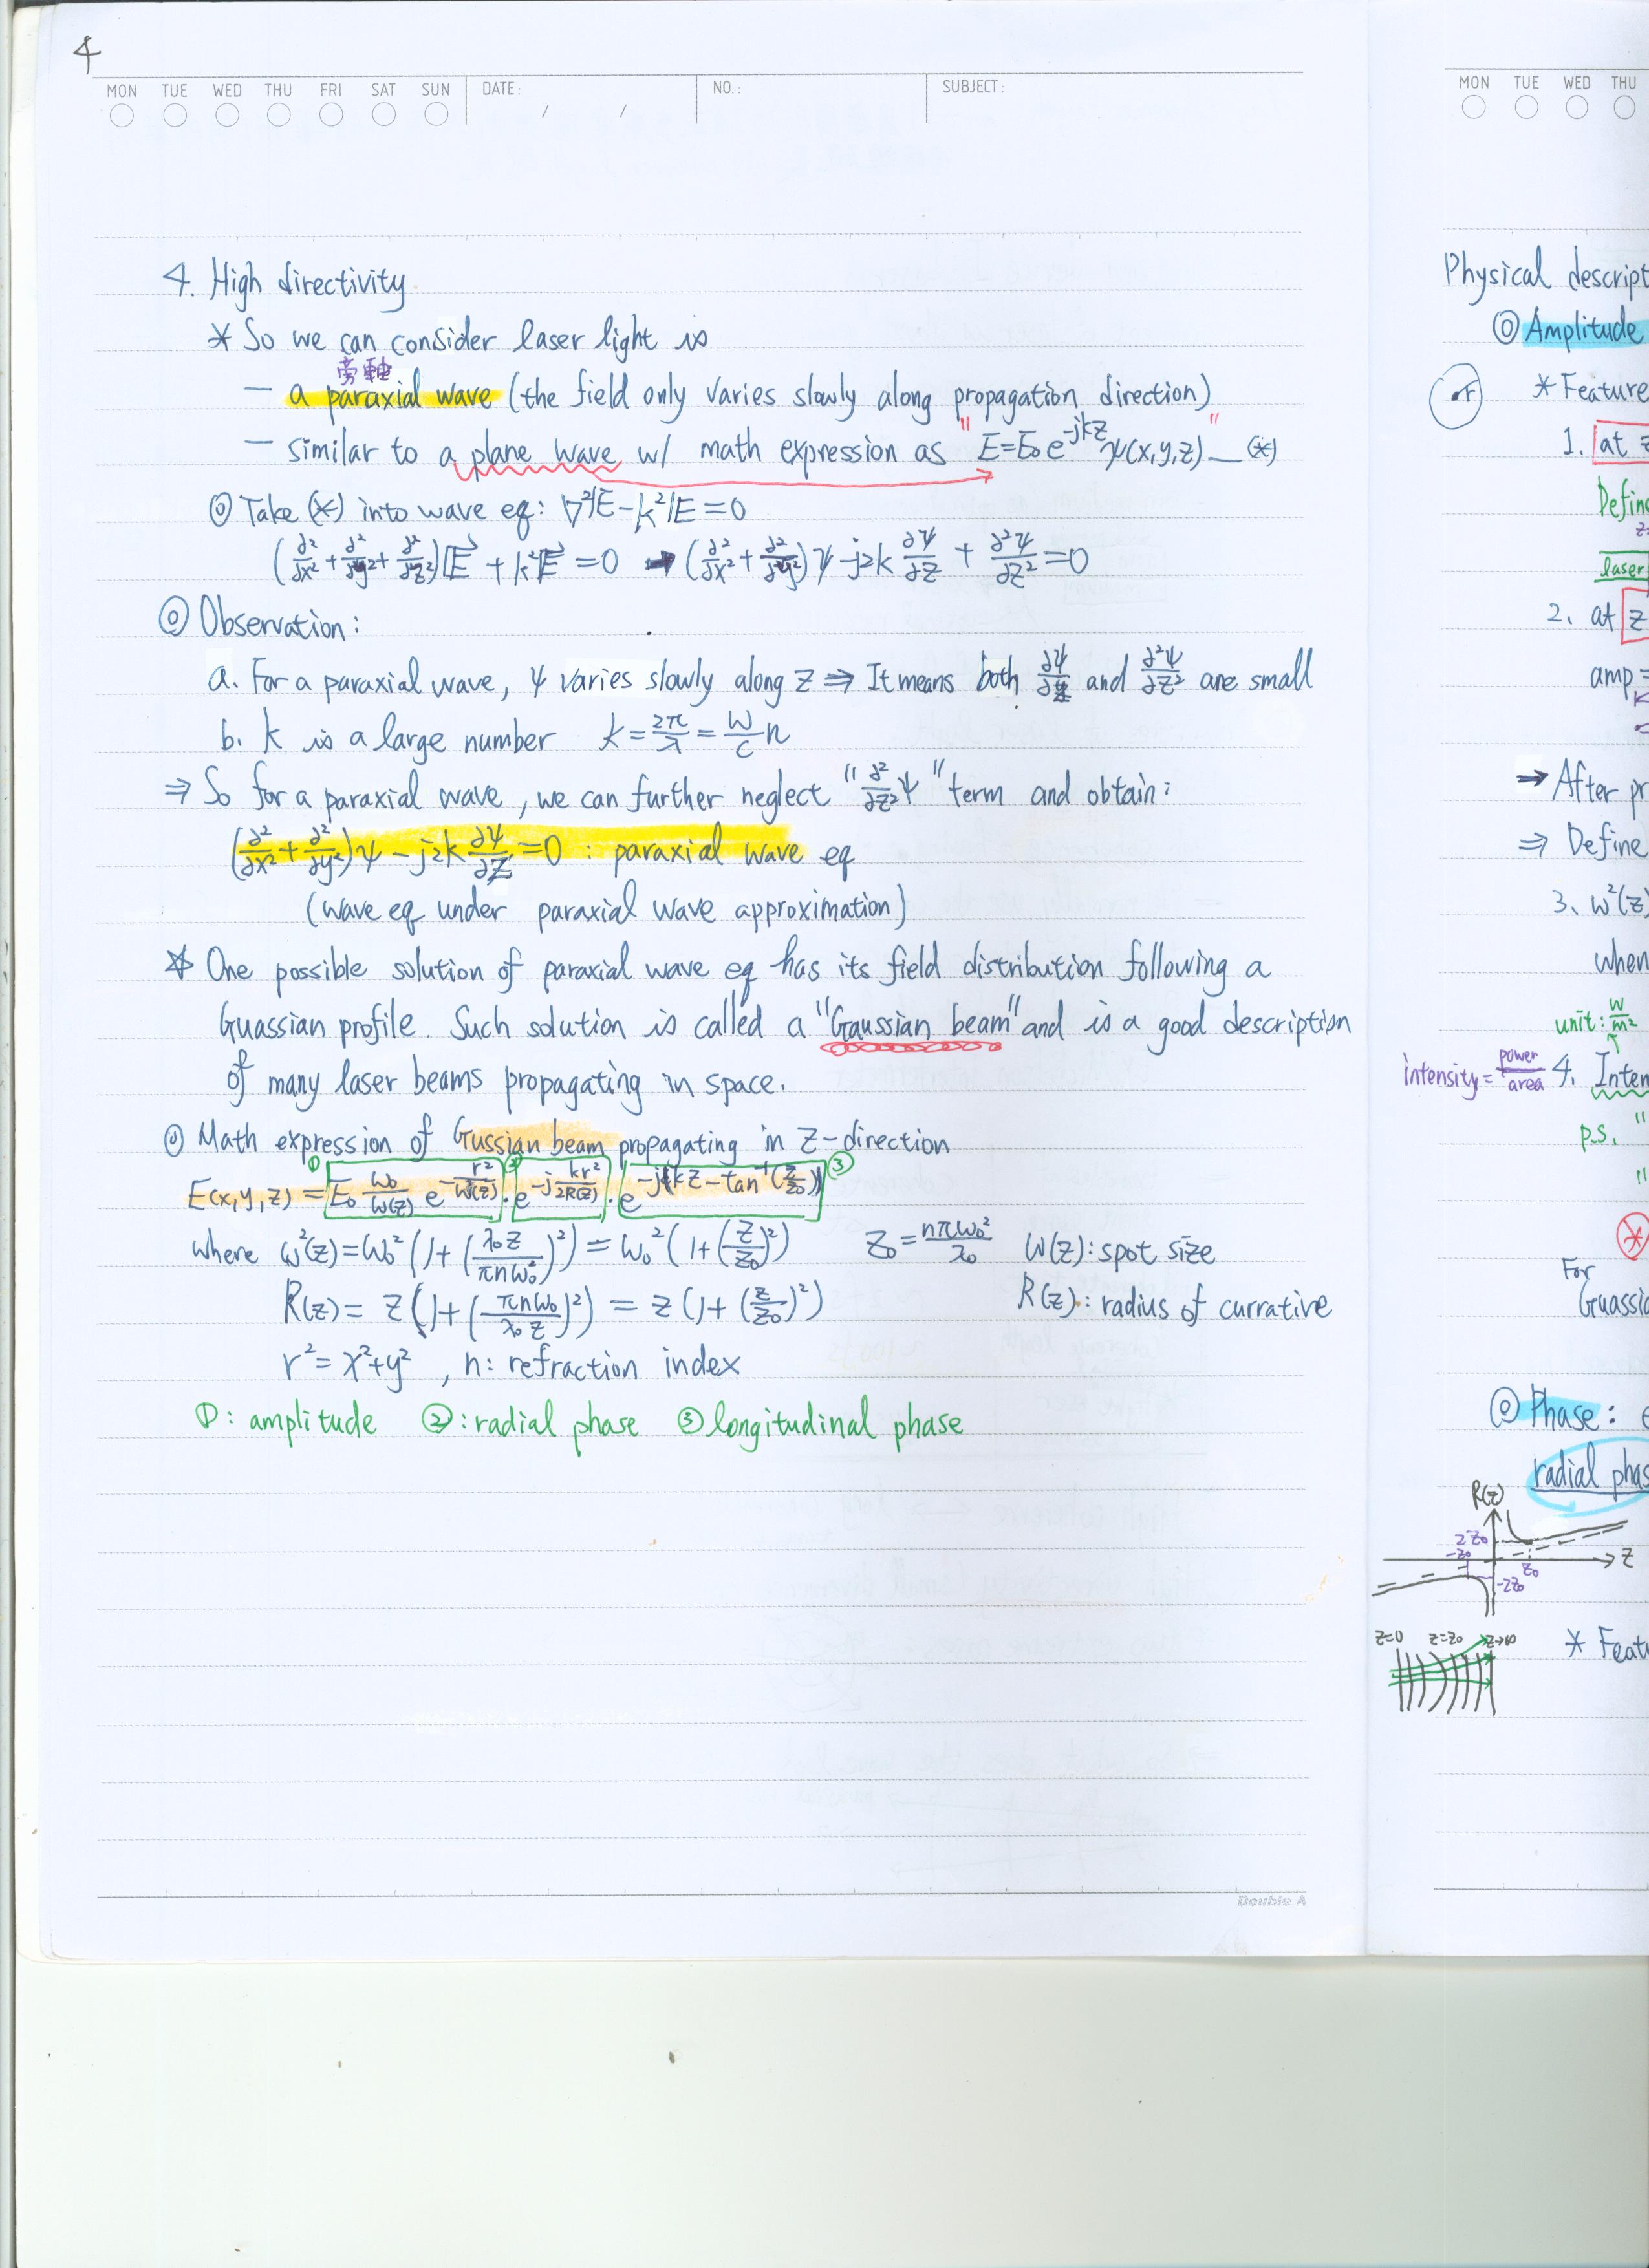 4
MON TUE WED THU FRI SAT SUN DATE: / / NO.: SUBJECT:
4. High directivity
* So we can consider laser light is
旁軸
— a paraxial wave (the field only varies slowly along propagation direction)
— similar to a plane wave w/ math expression as "E=E₀e^{-jkz}ψ(x,y,z)" — (*)
◎ Take (*) into wave eq: ∇²E-k²E=0
(∂²/∂x²+∂²/∂y²+∂²/∂z²)E⃗+k²E⃗=0 → (∂²/∂x²+∂²/∂y²)ψ-j2k ∂ψ/∂z + ∂²ψ/∂z²=0
◎ Observation:
a. For a paraxial wave, ψ varies slowly along z ⇒ It means both ∂ψ/∂z and ∂²ψ/∂z² are small
b. k is a large number k=2π/λ=ω/c n
⇒ So for a paraxial wave, we can further neglect "∂²/∂z² ψ" term and obtain:
(∂²/∂x²+∂²/∂y²)ψ-j2k ∂ψ/∂z=0 : paraxial wave eq
(wave eq under paraxial wave approximation)
* One possible solution of paraxial wave eq has its field distribution following a
Guassian profile. Such solution is called a "Gaussian beam" and is a good description
of many laser beams propagating in space.
◎ Math expression of Gussian beam propagating in z-direction
① ② ③
E(x,y,z) = E₀ ω₀/ω(z) e^{-r²/ω²(z)} · e^{-j kr²/2R(z)} · e^{-j(kz-tan⁻¹(z/z₀))}
where ω²(z)=ω₀²(1+(λ₀z/πnω₀²)²)=ω₀²(1+(z/z₀)²) z₀=nπω₀²/λ₀ ω(z): spot size
R(z)= z(1+(πnω₀/λ₀z)²) = z(1+(z/z₀)²) R(z): radius of currative
r²=x²+y², n: refraction index
①: amplitude ②: radial phase ③ longitudinal phase
Double A
MON TUE WED THU
Physical descript
◎ Amplitude
* Feature
1. at z
Define
laser
2. at z
amp =
→ After pr
⇒ Define
3. ω²(z)
when
unit: W/m²
intensity = power/area 4. Inten
p.s. "
"
*
For
Guassia
◎ Phase: e
radial phas
R(z)
2z₀
-z₀
z
z₀
-2z₀
z=0 z=z₀ z→∞
* Featu